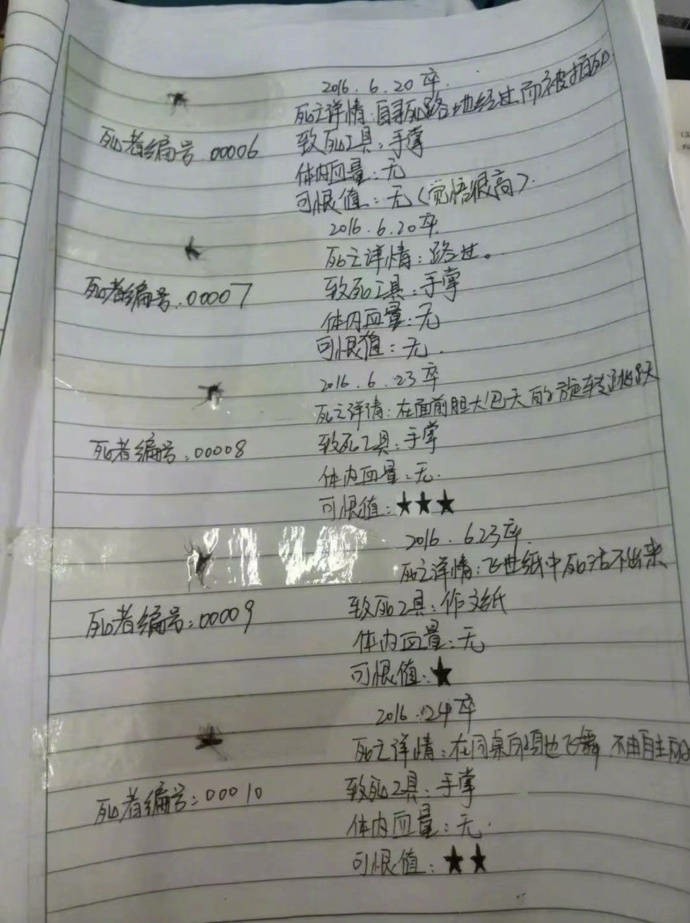 2016.6.20卒.
死亡详情:自寻死路地经过而被拍死
死者编号.00006
致死工具:手掌
体内血量:无
可恨值:无(觉悟很高).
2016.6.20卒.
死亡详情:路过。
死者编号.00007
致死工具:手掌
体内血量:无
可恨值:无.
2016.6.23卒
死亡详情:在面前胆大包天的旋转跳跃
死者编号:00008
致死工具:手掌
体内血量:无.
可恨值:★★★
2016.623卒.
死亡详情:飞进纸中死活不出来
死者编号:00009
致死工具:作文纸
体内血量:无
可恨值:★
2016.
死亡详情:在同桌 飞舞,不由自主
死者编号:00010
致死工具:手掌
体内血量:无.
可恨值:★★